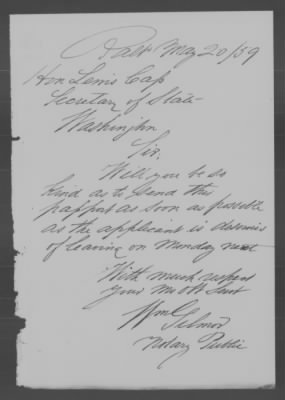 Balt May 20/59
Hon Lewis Cass
Secretary of State
Washington
Sir,
Will you be so
kind as to send this
passport as soon as possible
as the applicant is desirous
of leaving on Monday next
With much respect
Your Mo Ob Sert
Wm Gilmor
Notary Public